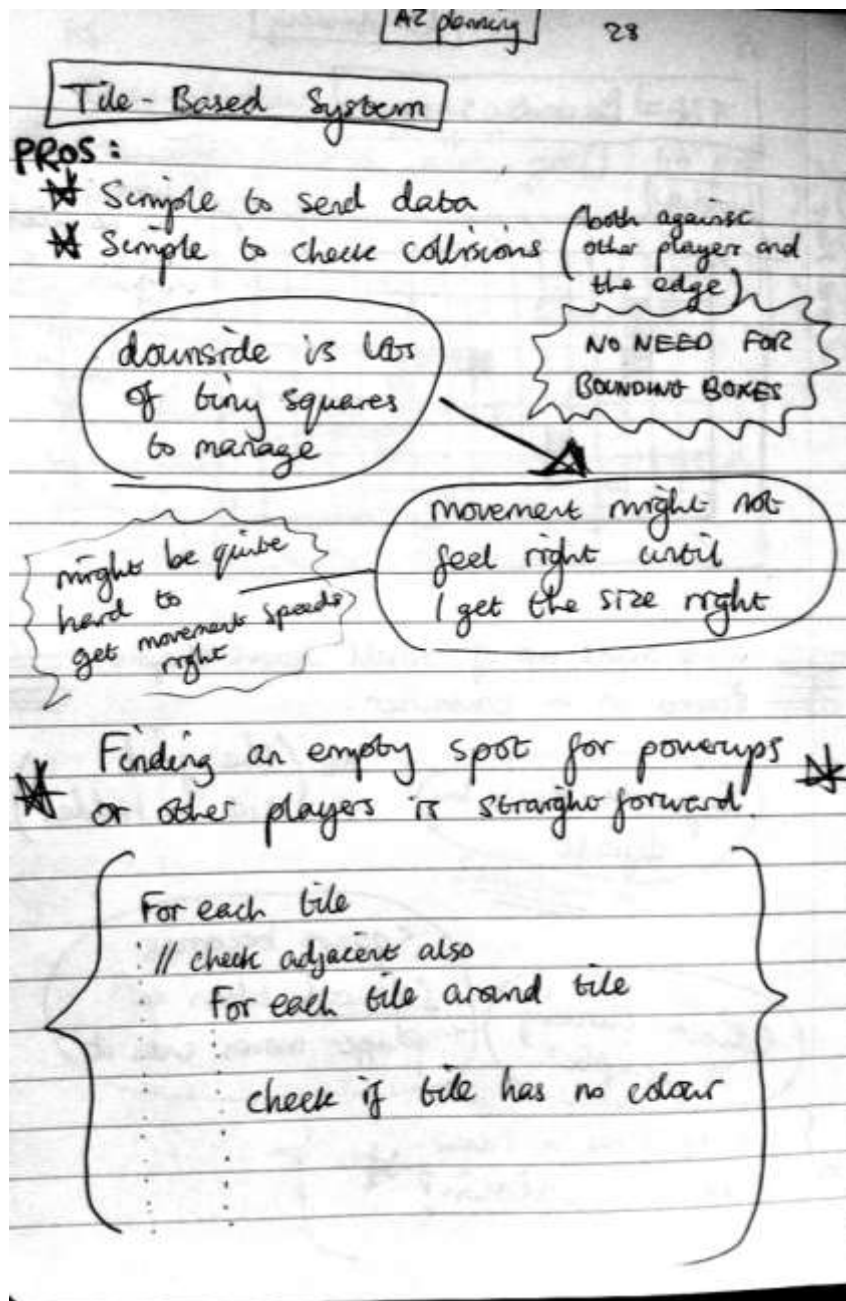 A2 planning
28
Tile-Based System
PROS:
Simple to send data
Simple to check collisions (both against
other players and
the edge)
NO NEED FOR
BOUNDING BOXES
downside is lots
of tiny squares
to manage
movement might not
feel right until
I get the size right
might be quite
hard to
get movement speeds
right
Finding an empty spot for powerups
or other players is straightforward.
For each tile
// check adjacent also
For each tile around tile
check if tile has no colour